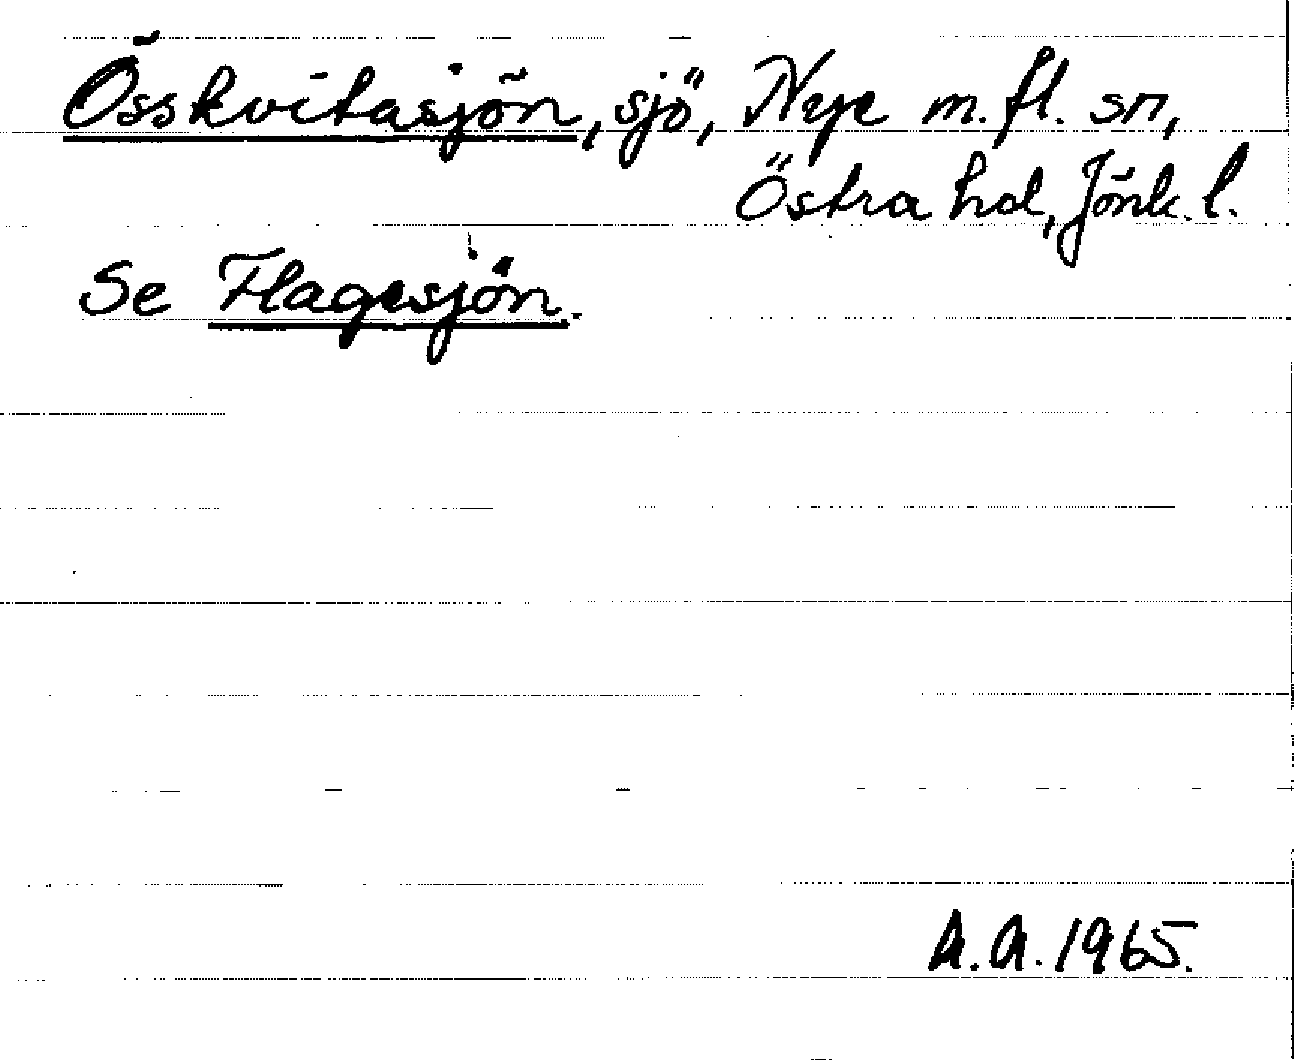 Össkvitasjön, sjö, Nye m.fl. sn,
Östra hd, Jönk. l.
Se Flagesjön.
A.A. 1965.